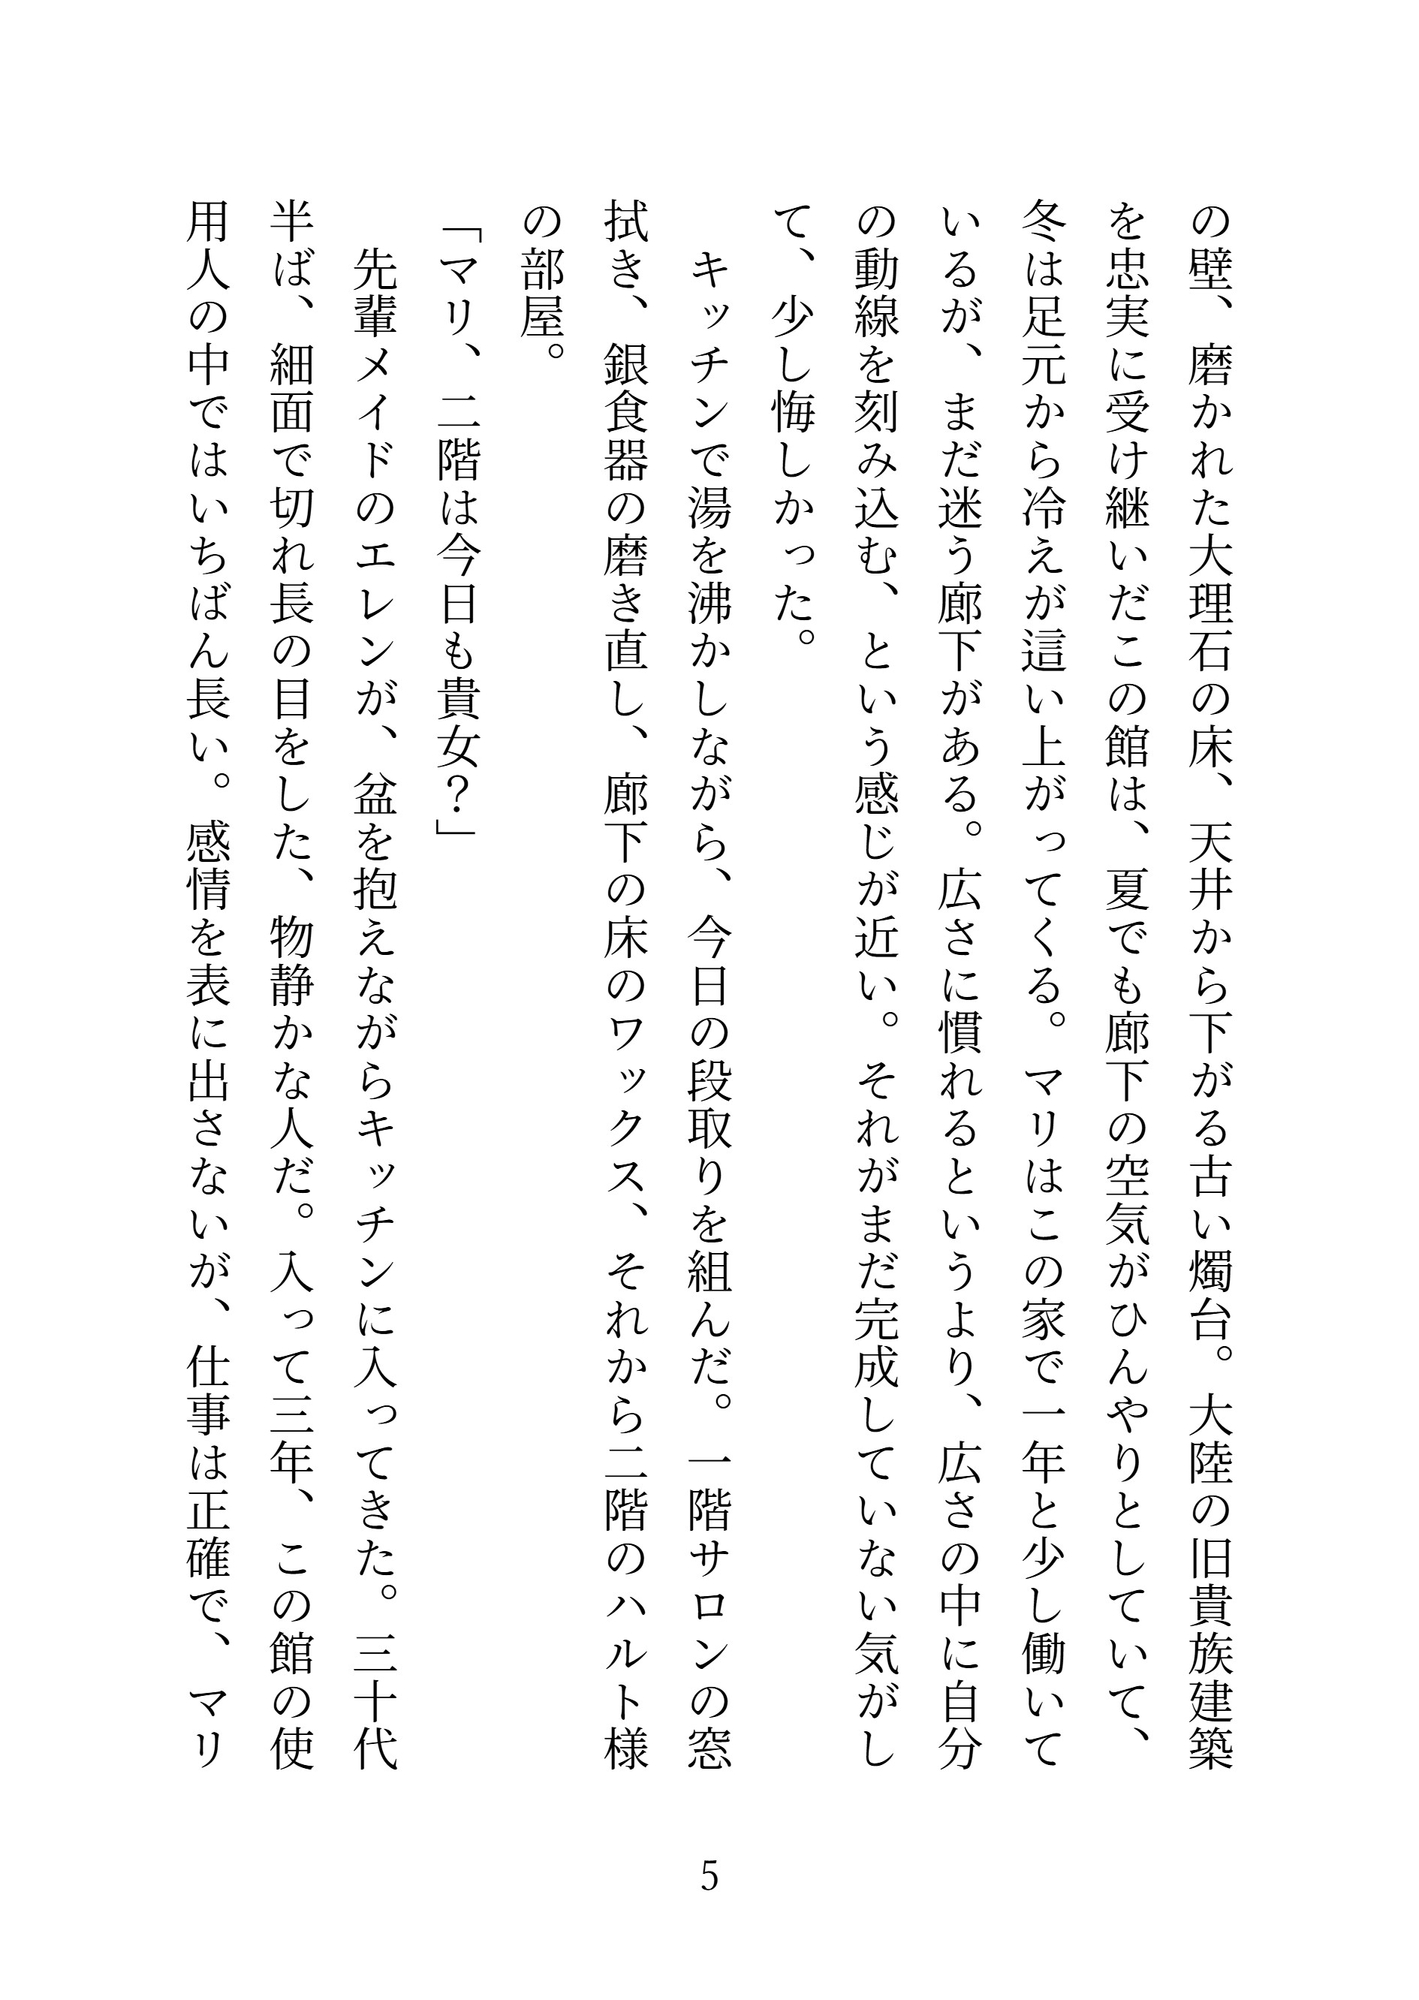 の壁、磨かれた大理石の床、天井から下がる古い燭台。大陸の旧貴族建築
を忠実に受け継いだこの館は、夏でも廊下の空気がひんやりとしていて、
冬は足元から冷えが這い上がってくる。マリはこの家で一年と少し働いて
いるが、まだ迷う廊下がある。広さに慣れるというより、広さの中に自分
の動線を刻み込む、という感じが近い。それがまだ完成していない気がし
て、少し悔しかった。
　キッチンで湯を沸かしながら、今日の段取りを組んだ。一階サロンの窓
拭き、銀食器の磨き直し、廊下の床のワックス、それから二階のハルト様
の部屋。
「マリ、二階は今日も貴女？」
　先輩メイドのエレンが、盆を抱えながらキッチンに入ってきた。三十代
半ば、細面で切れ長の目をした、物静かな人だ。入って三年、この館の使
用人の中ではいちばん長い。感情を表に出さないが、仕事は正確で、マリ
5